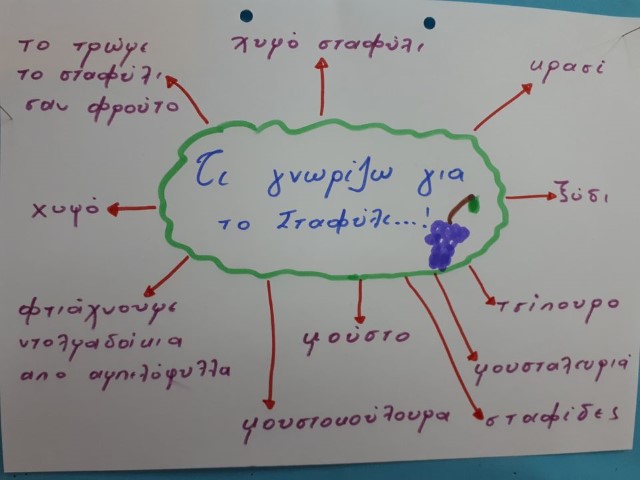 το τρώμε
το σταφύλι
σαν φρούτο
χυμό σταφύλι
κρασί
Τι γνωρίζω για
το Σταφύλι...!
χυμό
ξύδι
φτιάχνουμε
ντολμαδάκια
απο αμπιλόφυλλα
μούστο
τσίπουρο
μουσταλευριά
μουστοκούλουρα
σταφίδες